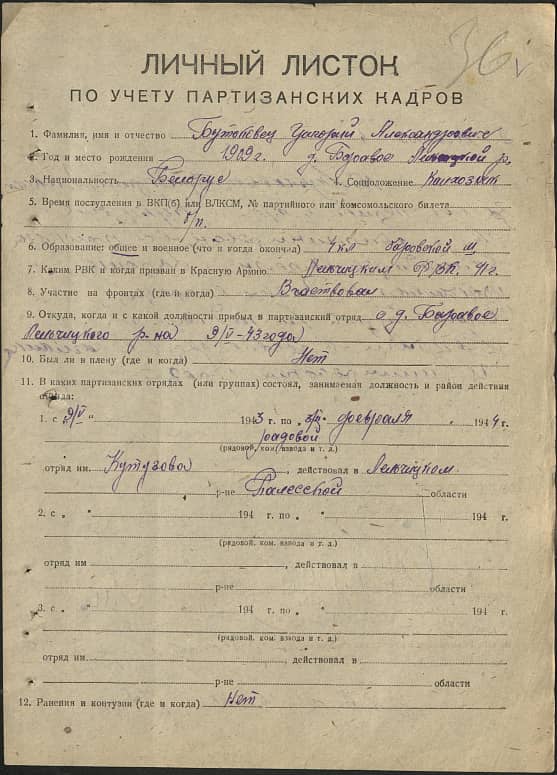 36
ЛИЧНЫЙ ЛИСТОК
ПО УЧЕТУ ПАРТИЗАНСКИХ КАДРОВ
1. Фамилия, имя и отчество Александрович
2. Год и место рождения 1909 г. д. Боравое р.
3. Национальность Белорус 4. Соцположение Калхозник
5. Время поступления в ВКП(б) или ВЛКСМ, № партийного или комсомольского билета
б/п.
6. Образование: общее и военное (что и когда окончил) 4 кл
7. Каким РВК и когда призван в Красную Армию Лельчицким РВК. 41 г.
8. Участие на фронтах (где и когда) Участвовал
9. Откуда, когда и с какой должности прибыл в партизанский отряд с д. Боравое
Лельчицкого р-на 9/V-43 года
10. Был ли в плену (где и когда) Нет
11. В каких партизанских отрядах (или группах) состоял, занимаемая должность и район действия
отряда:
1. с 9/V " 1943 г. по февраля 1944 г.
радовой
(рядовой, ком. взвода и т. д.)
отряд им Кутузова, действовал в Лельчицком
р-не Палесской области
2. с " 194 г. по " 194 г.
(рядовой, ком. взвода и т. д.)
отряд им , действовал в
р-не области
3. с " 194 г. по " 194 г.
(рядовой, ком. взвода и т. д.)
отряд им действовал в
р-не области
12. Ранения и контузии (где и когда) Нет